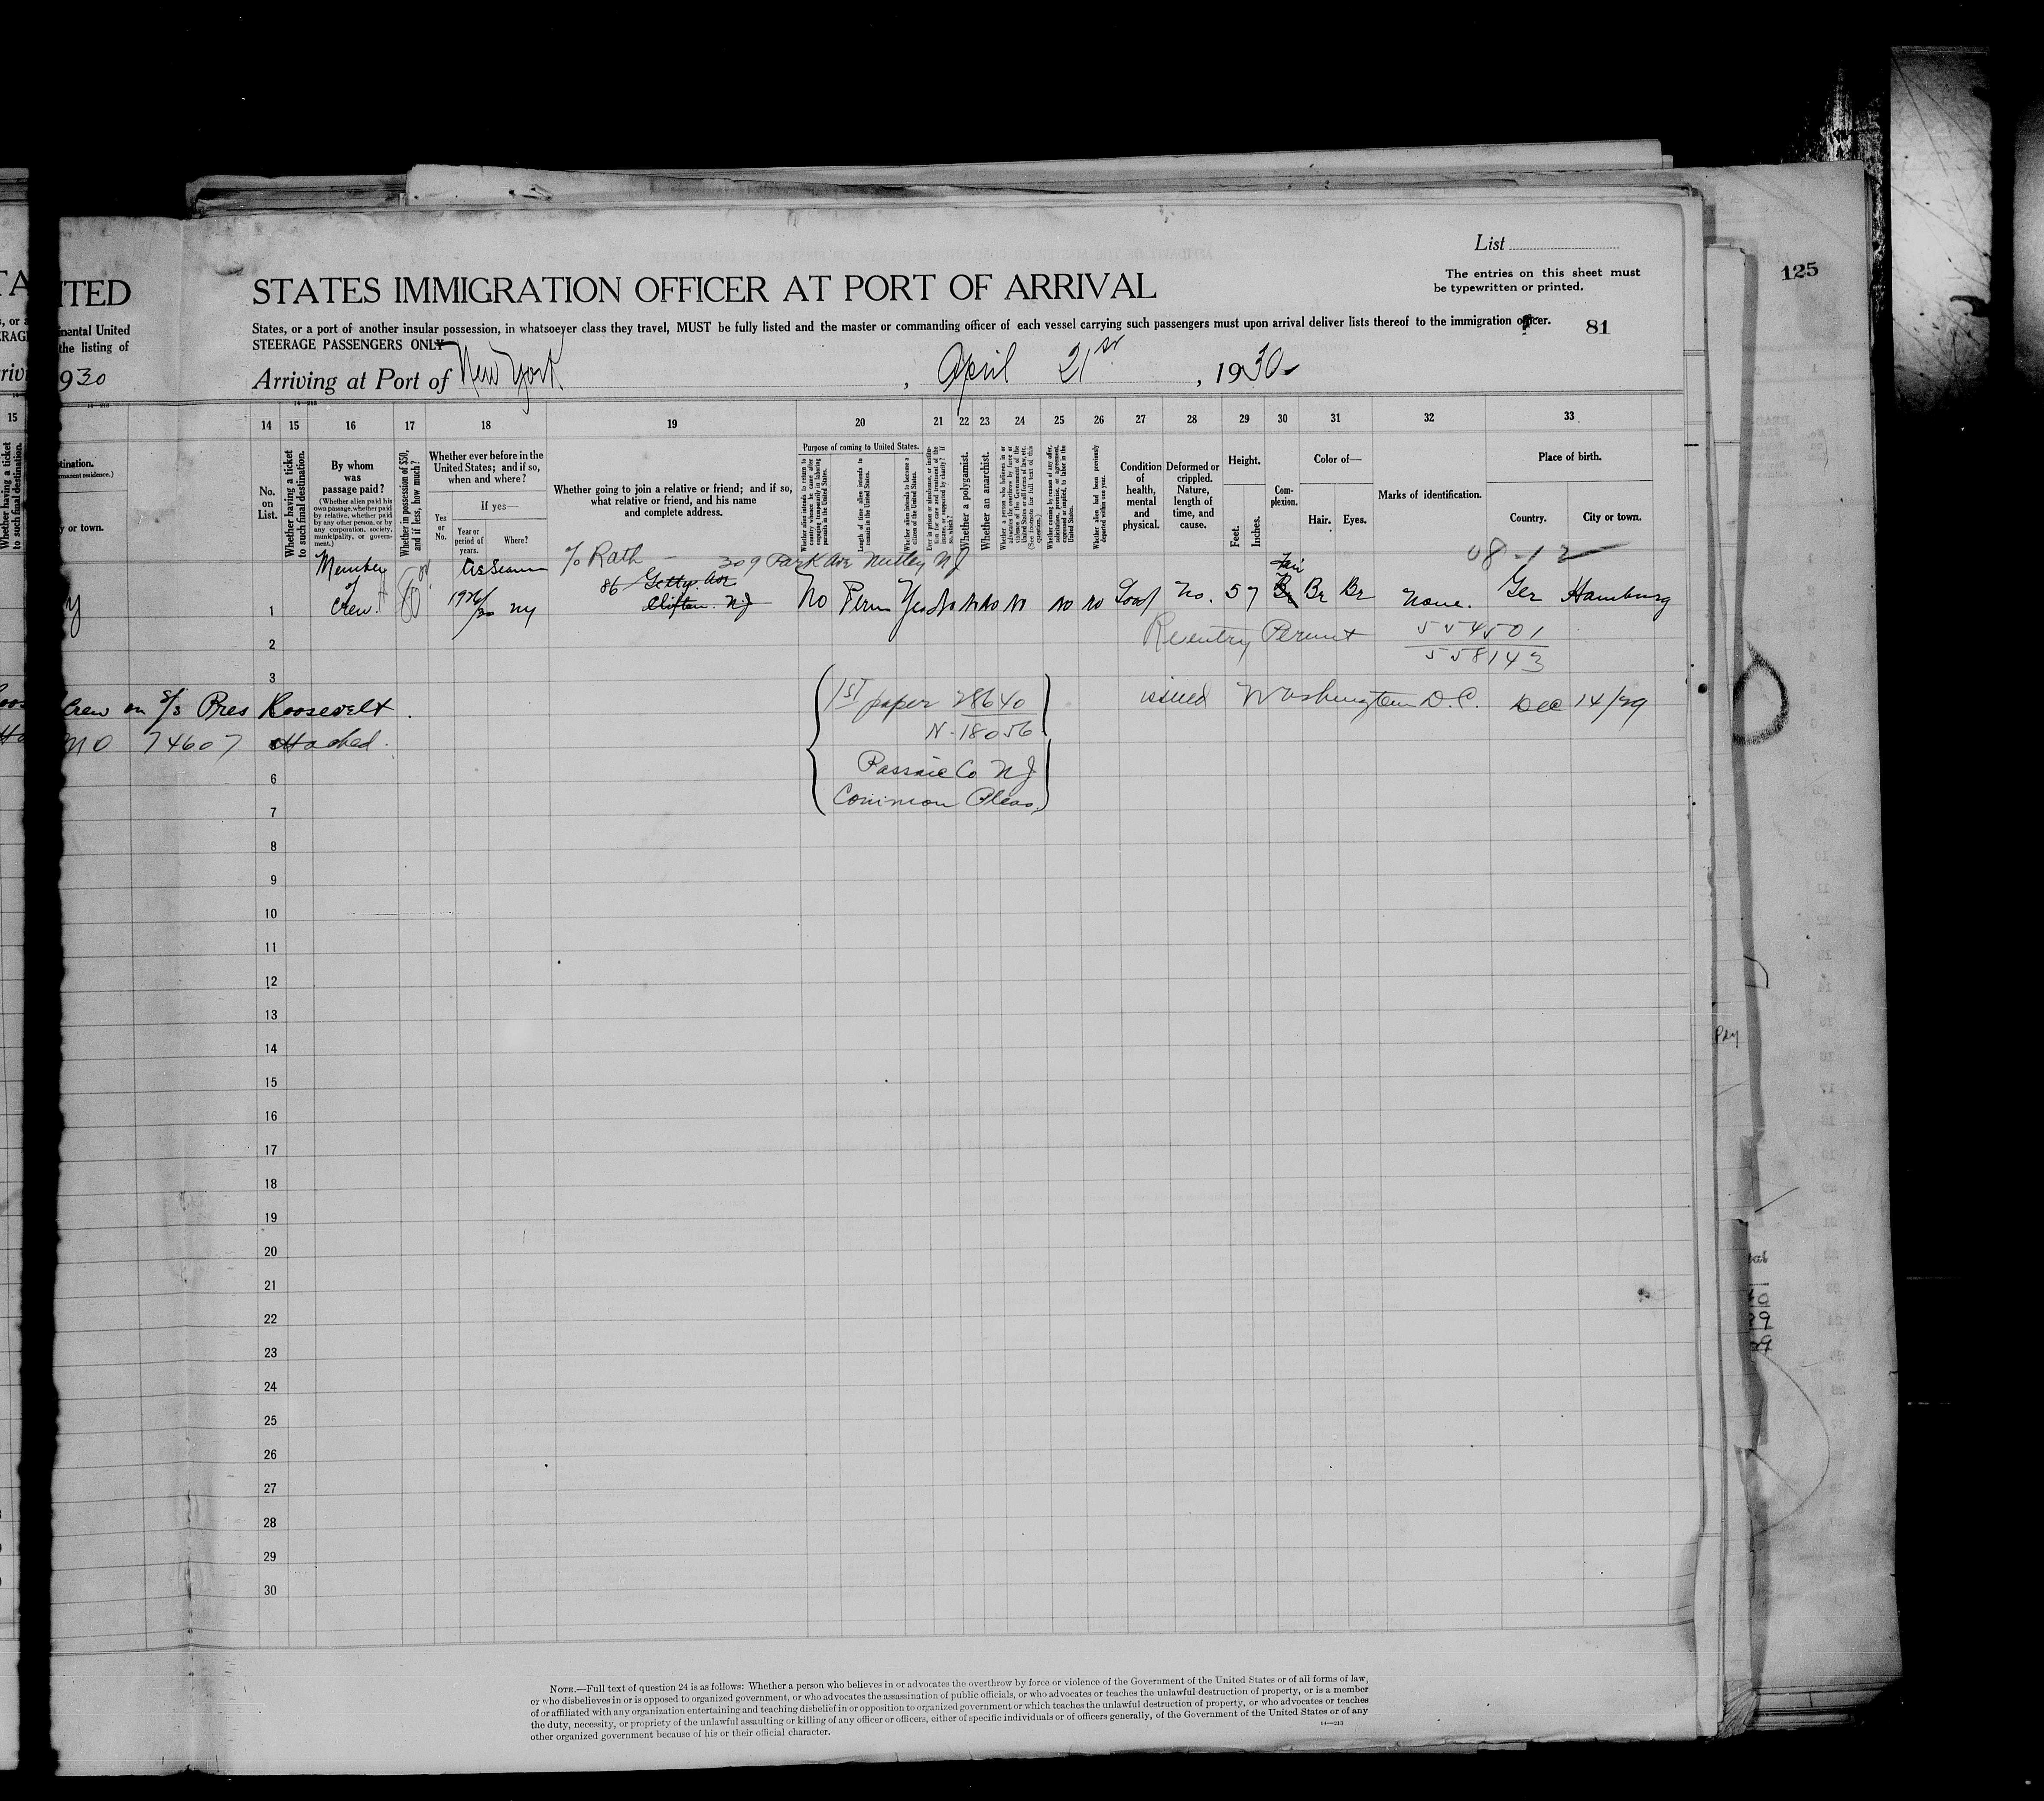 List
The entries on this sheet must
be typewritten or printed.
125
ITED
STATES IMMIGRATION OFFICER AT PORT OF ARRIVAL
inental United
the listing of
States, or a port of another insular possession, in whatsoever class they travel, MUST be fully listed and the master or commanding officer of each vessel carrying such passengers must upon arrival deliver lists thereof to the immigration officer.
81
STEERAGE PASSENGERS ONLY
930
Arriving at Port of New York, April 21st, 1930
15
14 15 16 17 18 19 20 21 22 23 24 25 26 27 28 29 30 31 32 33
Whether having a ticket
to such final destination.
tination.
y or town.
No.
on
List.
Whether having a ticket
to such final destination.
By whom
was
passage paid?
(Whether alien paid his
own passage, whether paid
by relative, whether paid
by any other person, or by
any corporation, society,
municipality, or govern-
ment.)
Whether in possession of $50,
and if less, how much?
Whether ever before in the
United States; and if so,
when and where?
Yes
or
No.
If yes—
Year or
period of
years.
Where?
Whether going to join a relative or friend; and if so,
what relative or friend, and his name
and complete address.
Purpose of coming to United States.
Whether alien intends to return to
country whence he came after
engaging temporarily in laboring
pursuits in the United States.
Length of time alien intends to
remain in the United States.
Whether alien intends to become a
citizen of the United States.
Whether a polygamist.
Whether an anarchist.
Condition
of
health,
mental
and
physical.
Deformed or
crippled.
Nature,
length of
time, and
cause.
Height.
Feet.
Inches.
Com-
plexion.
Color of—
Hair.
Eyes.
Marks of identification.
Place of birth.
Country.
City or town.
c/o Rath — 309 Park Ave Nutley NJ
Member
of
Crew.
As Seaman
86 Getty Ave
Clifton. N.J
Fair
1 NY No Perm Yes No No No No No No Good No. 5 7 Br Br Br None. Ger Hamburg
2 Reentry Permit 554501
558143
3
1st paper 28640
issued Washington D.C. Dec 14/29
Crew on S/S Pres Roosevelt.
N-18056
NO 74607 attached.
6 Passaic Co NJ
7 Common Pleas
8
9
10
11
12
13
14
15
16
17
18
19
20
21
22
23
24
25
26
27
28
29
30
NOTE.—Full text of question 24 is as follows: Whether a person who believes in or advocates the overthrow by force or violence of the Government of the United States or of all forms of law,
or who disbelieves in or is opposed to organized government, or who advocates the assassination of public officials, or who advocates or teaches the unlawful destruction of property, or is a member
of or affiliated with any organization entertaining and teaching disbelief in or opposition to organized government or which teaches the unlawful destruction of property, or who advocates or teaches
the duty, necessity, or propriety of the unlawful assaulting or killing of any officer or officers, either of specific individuals or of officers generally, of the Government of the United States or of any
other organized government because of his or their official character.
14—213